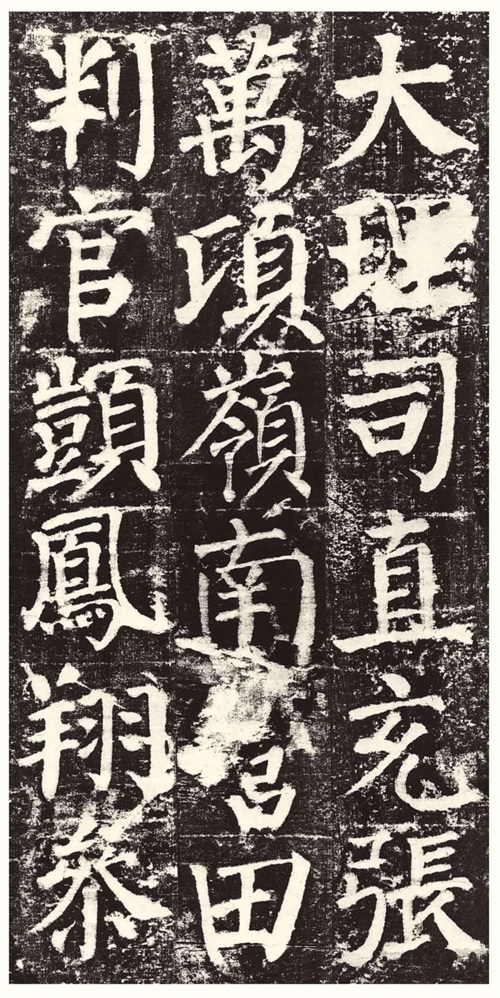 大理司直充張
萬頃嶺南營田
判官顗鳳翔參